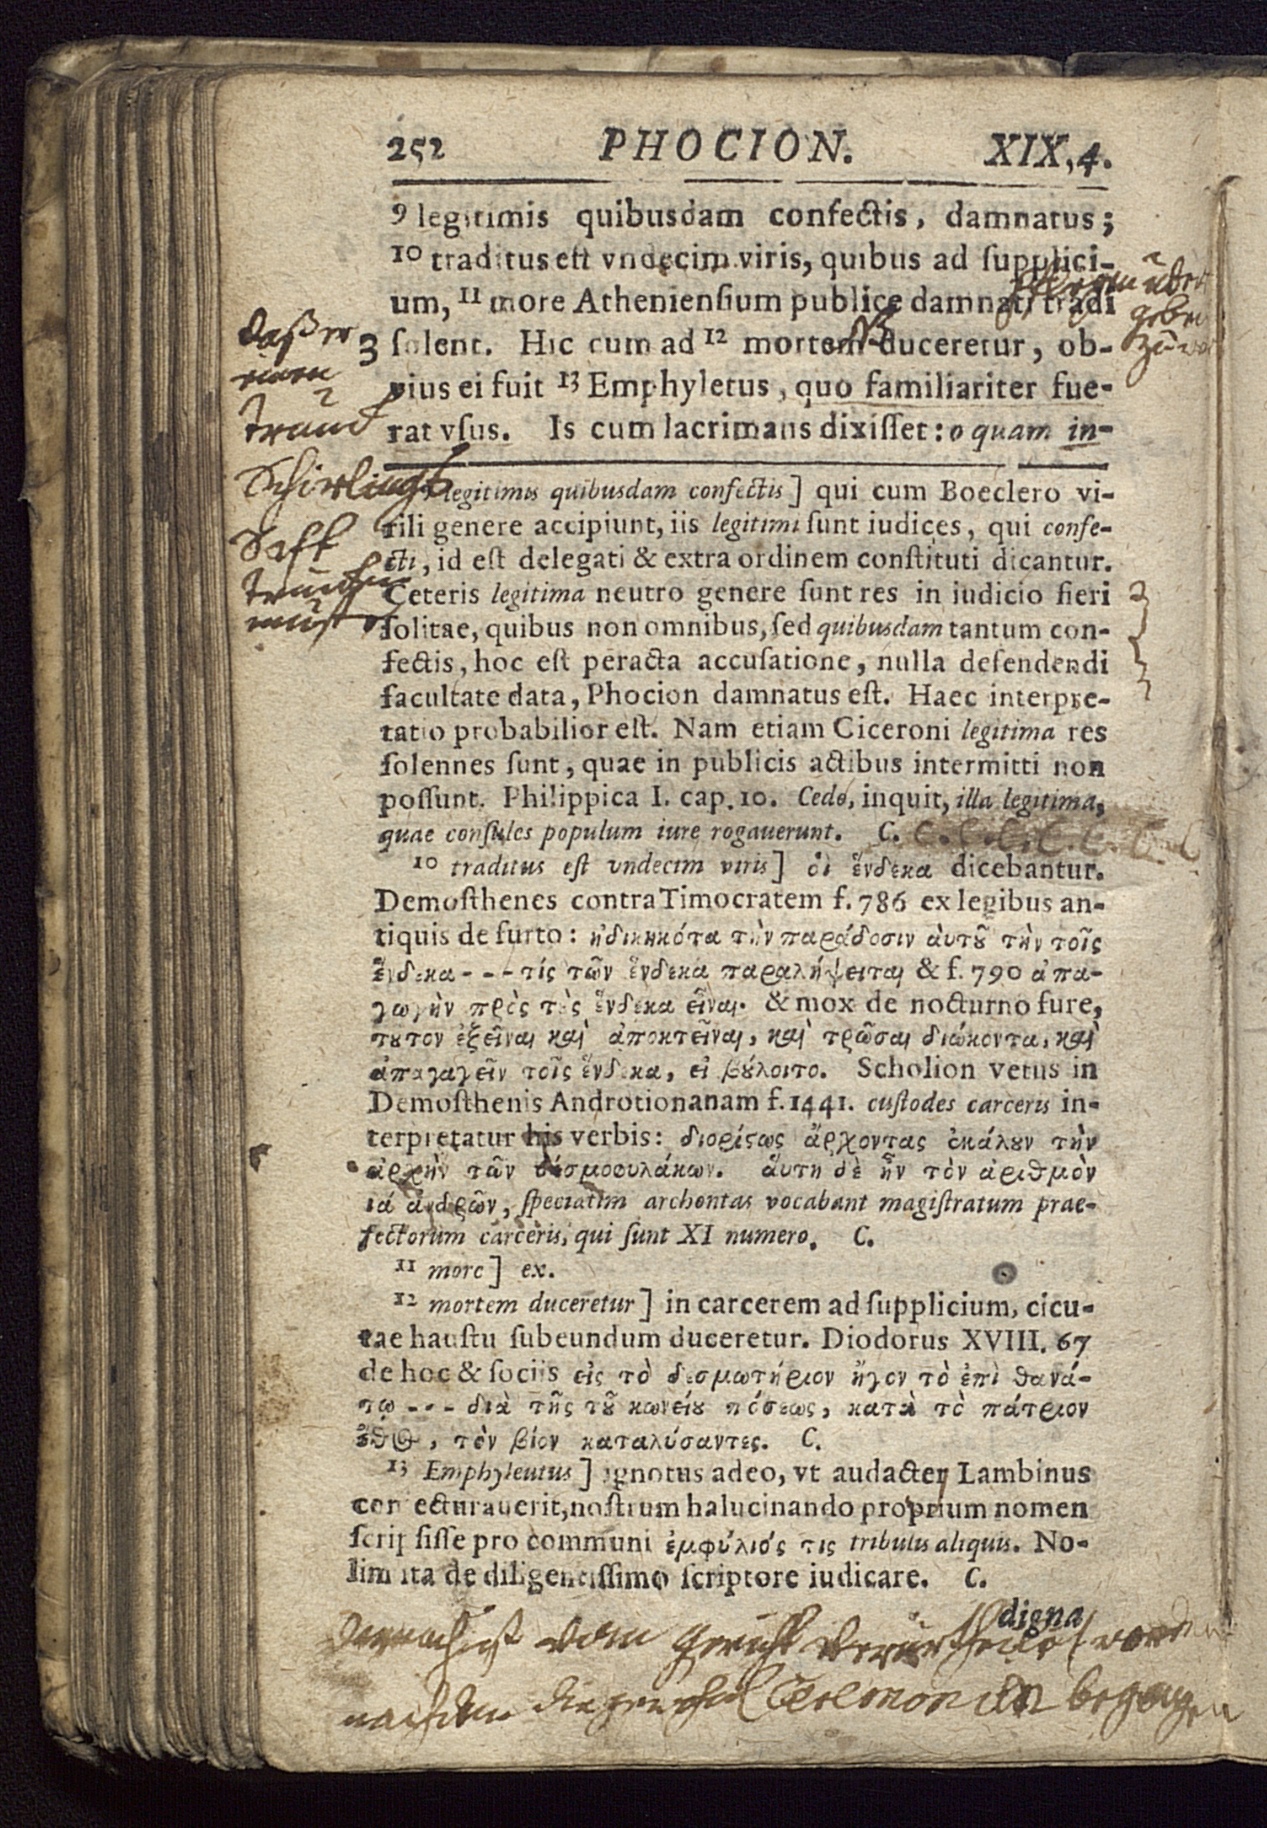 252 PHOCION. XIX,4.
9 legitimis quibusdam confectis, damnatus;
10 traditus est vndecim viris, quibus ad supplici-
um, 11 more Atheniensium publice damnati tradi
3 solent. Hic cum ad 12 mortem duceretur, ob-
vius ei fuit 13 Emphyletus, quo familiariter fue-
rat vsus. Is cum lacrimans dixisset: o quam in-
daß er
Schirlings
Safft
geben
legitimis quibusdam confectis] qui cum Boeclero vi-
rili genere accipiunt, iis legitimi sunt iudices, qui confe-
cti, id est delegati & extra ordinem constituti dicantur.
Ceteris legitima neutro genere sunt res in iudicio fieri
solitae, quibus non omnibus, sed quibusdam tantum con-
fectis, hoc est peracta accusatione, nulla defendendi
facultate data, Phocion damnatus est. Haec interpre-
tatio probabilior est. Nam etiam Ciceroni legitima res
solennes sunt, quae in publicis actibus intermitti non
possunt. Philippica I. cap. 10. Cedo, inquit, illa legitima,
quae consules populum iure rogauerunt. C. C. C. C. C. C. C.
10 traditus est vndecim viris] οἱ ἕνδεκα dicebantur.
Demosthenes contra Timocratem f. 786 ex legibus an-
tiquis de furto: ἠδικηκότα τὴν παράδοσιν ἀυτȣ͂ τὴν τοῖς
ἕνδεκα - - - τίς τῶν ἕνδεκα παραλήψεται & f. 790 ἀπα-
γωγὴν πρὸς τȣ̀ς ἕνδεκα εἶναι. & mox de nocturno fure,
τȣτον ἐξεῖναι καὶ ἀποκτεῖναι, καὶ τρῶσαι διώκοντα, καὶ
ἀπαγαγεῖν τοῖς ἕνδεκα, εἰ βȣ́λοιτο. Scholion vetus in
Demosthenis Androtionanam f. 1441. custodes carceris in-
terpretatur his verbis: διορίϛως ἄρχοντας ἐκάλȣν τὴν
ἀρχὴν τῶν θεσμοφυλάκων. ἅυτη δὲ ἦν τὸν ἀριθμὸν
ιά ἀνδρῶν, speciatim archontas vocabant magistratum prae-
fectorum carceris, qui sunt XI numero. C.
11 more] ex.
12 mortem duceretur] in carcerem ad supplicium, cicu-
tae haustu subeundum duceretur. Diodorus XVIII. 67
de hoc & sociis εἰς τὸ δεσμωτήριον ἦγον τὸ ἐπὶ θανά-
τῳ - - - διὰ τῆς τȣ͂ κωνείȣ πόσεως, κατὰ τὸ πάτριον
ἔθος, τὸν βίον καταλύσαντες. C.
13 Emphyleutus] ignotus adeo, vt audacter Lambinus
coniecturauerit, nostrum halucinando proprium nomen
scripsisse pro communi ἐμφύλιός τις tribulis aliquis. No-
lim ita de diligentissimo scriptore iudicare. C.
digna